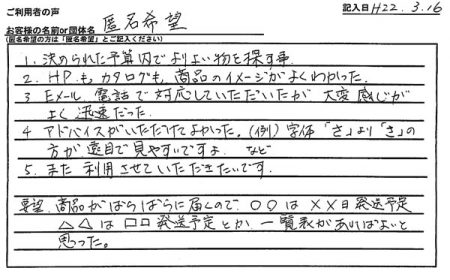 ご利用者の声
記入日 H22. 3.16
お客様の名前or団体名 匿名希望
(匿名希望の方は「匿名希望」とご記入ください)
1. 決められた予算内でよりよい物を探す事
2. HPも、カタログも、商品のイメージがよくわかった.
3 Eメール、電話で対応していただいたが 大変感じが
よく迅速だった.
4 アドバイスがいただけてよかった。(例) 字体「さ」より「さ」の
方が遠目で見やすいですよ. など
5. また利用させていただきたいです.
要望. 商品がばらばらに届くので ○○は ××日発送予定
△△は □□ 発送予定とか 一覧表があればよいと
思った。